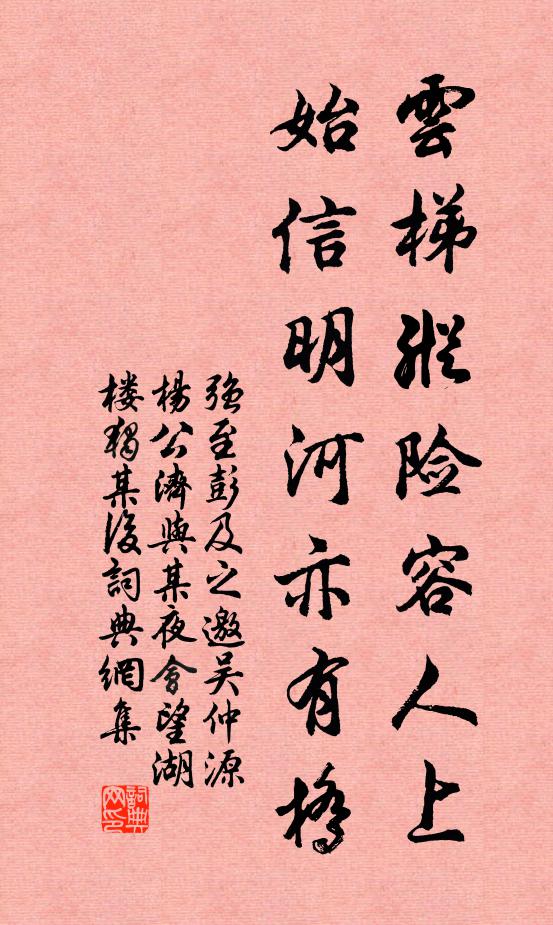 雲梯縱险容人上
始信明河亦有橋
强至彭及之邀吴仲源
楊公濟與某夜會望湖
楼獨某後詞典網集
詞典網印